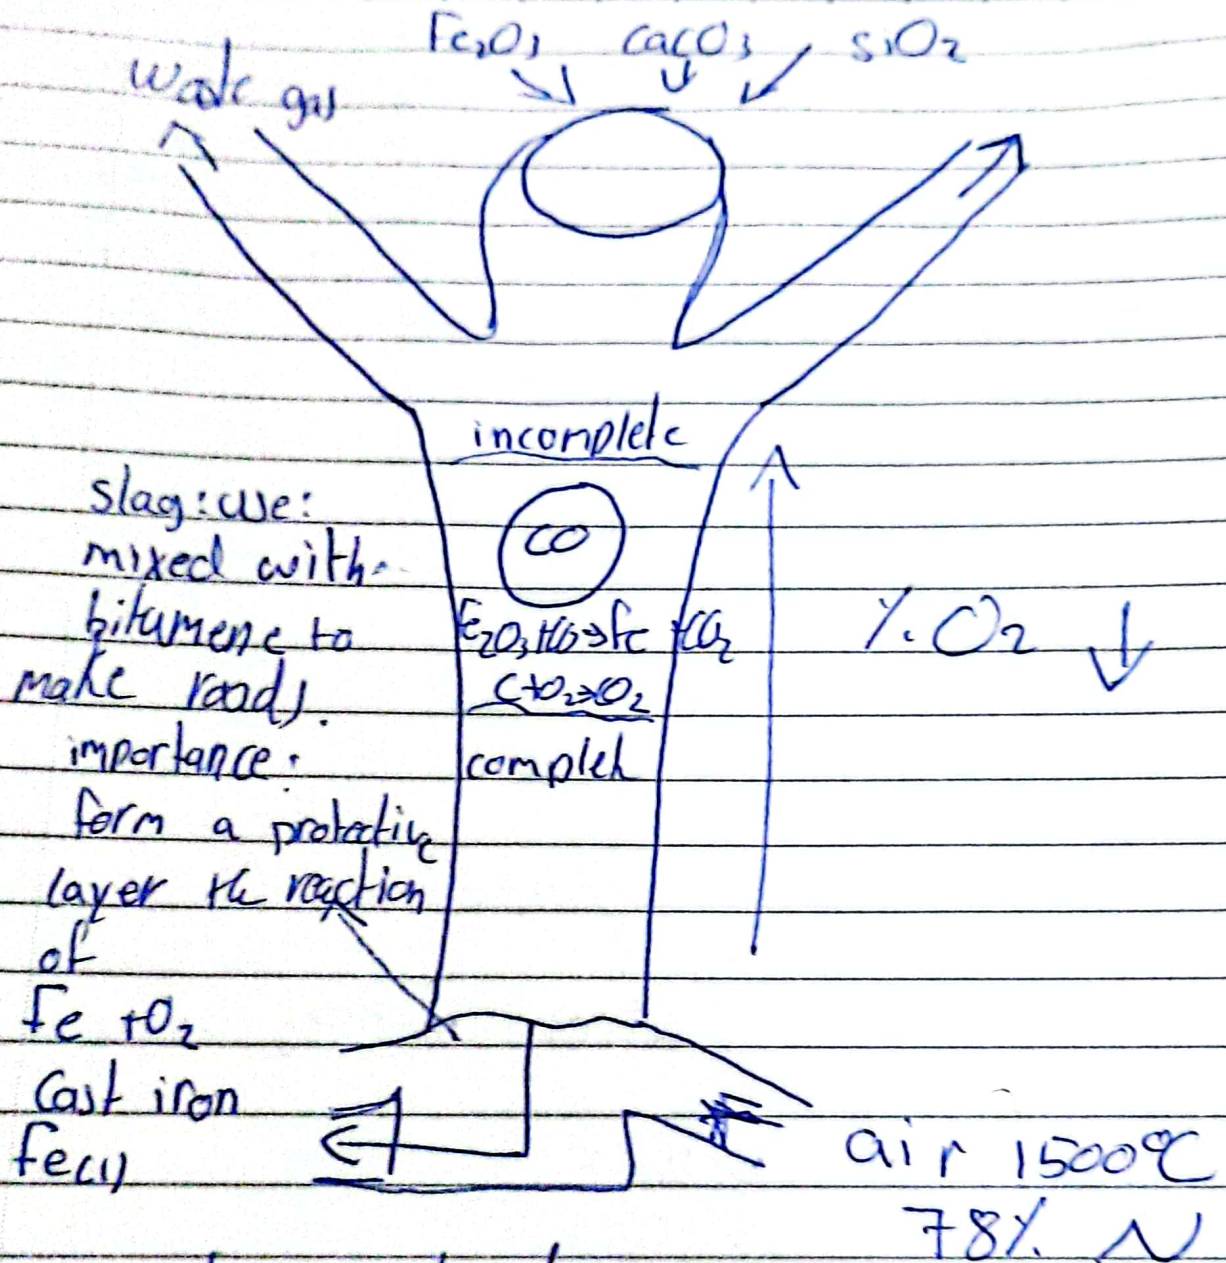 Fe₂O₃ CaCO₃ SiO₂
waste gas
incomplete
CO
Fe₂O₃+CO→Fe +CO₂
C+O₂→O₂
complete
% O₂ ↓
slag: use:
mixed with
bitumene to
make roads.
importance:
form a protective
layer the reaction
of
Fe +O₂
Cast iron
Fe(l)
air 1500°C
78% N